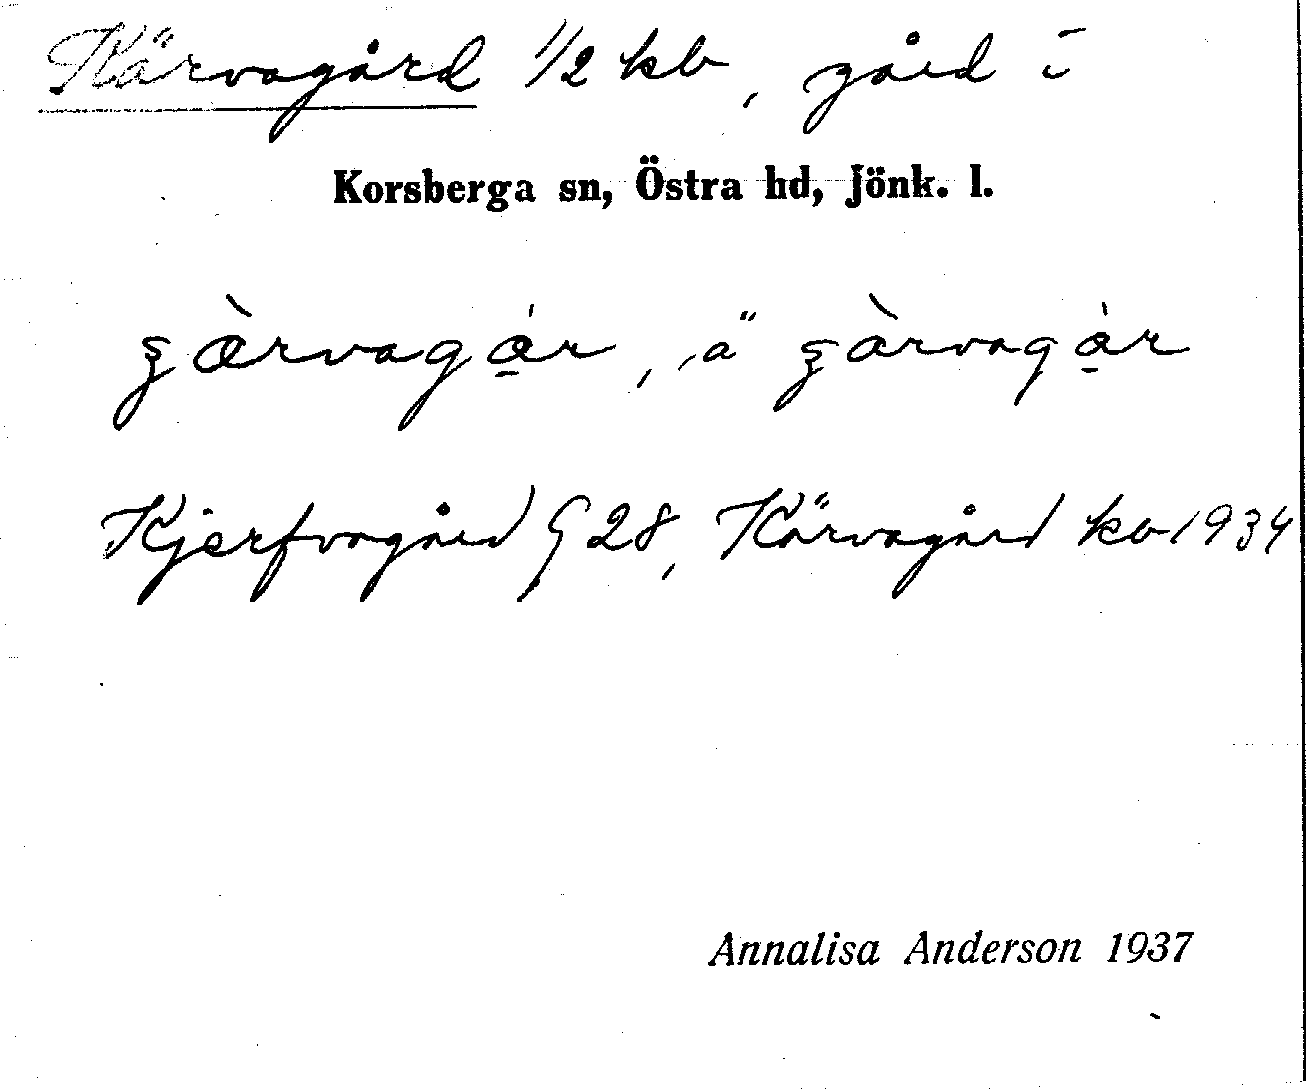 Kärvagård 1/2 kb, gård i
Korsberga sn, Östra hd, Jönk. l.
ʒàrvagár, ä ʒàrvagár
Kjerfvagård G 28, Kärvagård kb 1934
Annalisa Anderson 1937